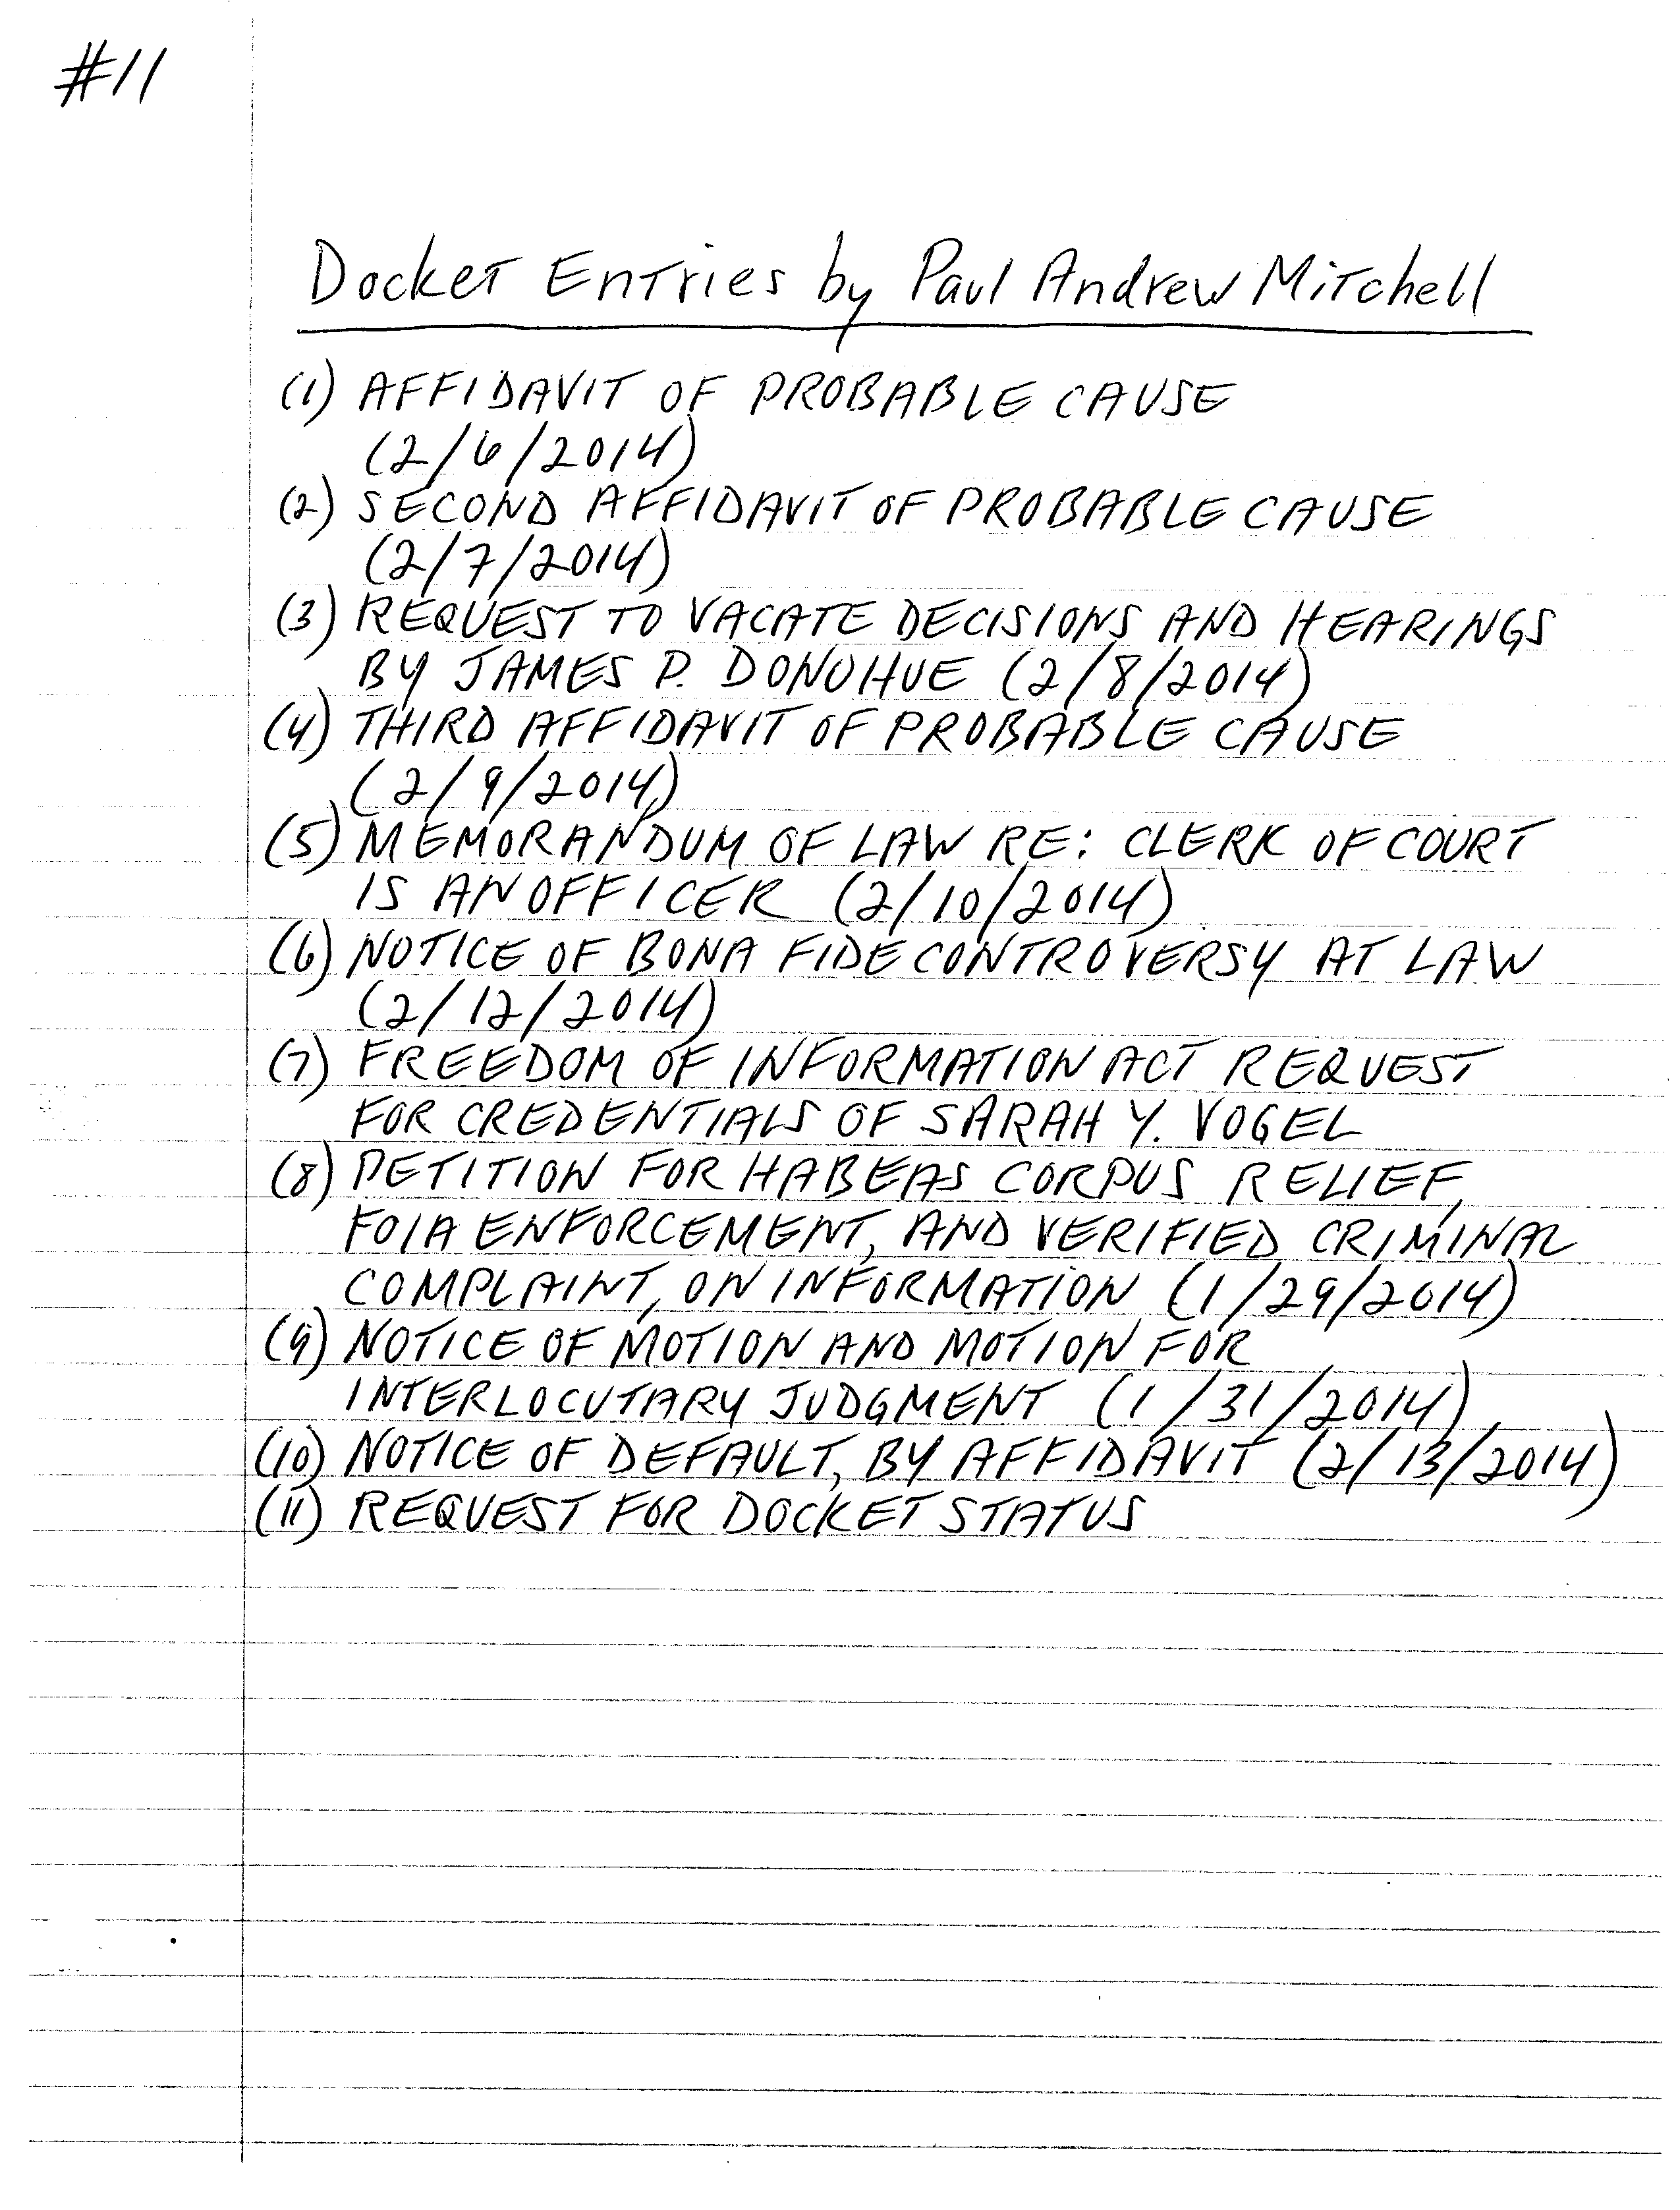 #11
Docket Entries by Paul Andrew Mitchell
(1) AFFIDAVIT OF PROBABLE CAUSE
(2/6/2014)
(2) SECOND AFFIDAVIT OF PROBABLE CAUSE
(2/7/2014)
(3) REQUEST TO VACATE DECISIONS AND HEARINGS
BY JAMES P. DONOHUE (2/8/2014)
(4) THIRD AFFIDAVIT OF PROBABLE CAUSE
(2/9/2014)
(5) MEMORANDUM OF LAW RE: CLERK OF COURT
IS AN OFFICER (2/10/2014)
(6) NOTICE OF BONA FIDE CONTROVERSY AT LAW
(2/12/2014)
(7) FREEDOM OF INFORMATION ACT REQUEST
FOR CREDENTIALS OF SARAH Y. VOGEL
(8) PETITION FOR HABEAS CORPUS RELIEF,
FOIA ENFORCEMENT, AND VERIFIED CRIMINAL
COMPLAINT, ON INFORMATION (1/29/2014)
(9) NOTICE OF MOTION AND MOTION FOR
INTERLOCUTARY JUDGMENT (1/31/2014)
(10) NOTICE OF DEFAULT, BY AFFIDAVIT (2/13/2014)
(11) REQUEST FOR DOCKET STATUS